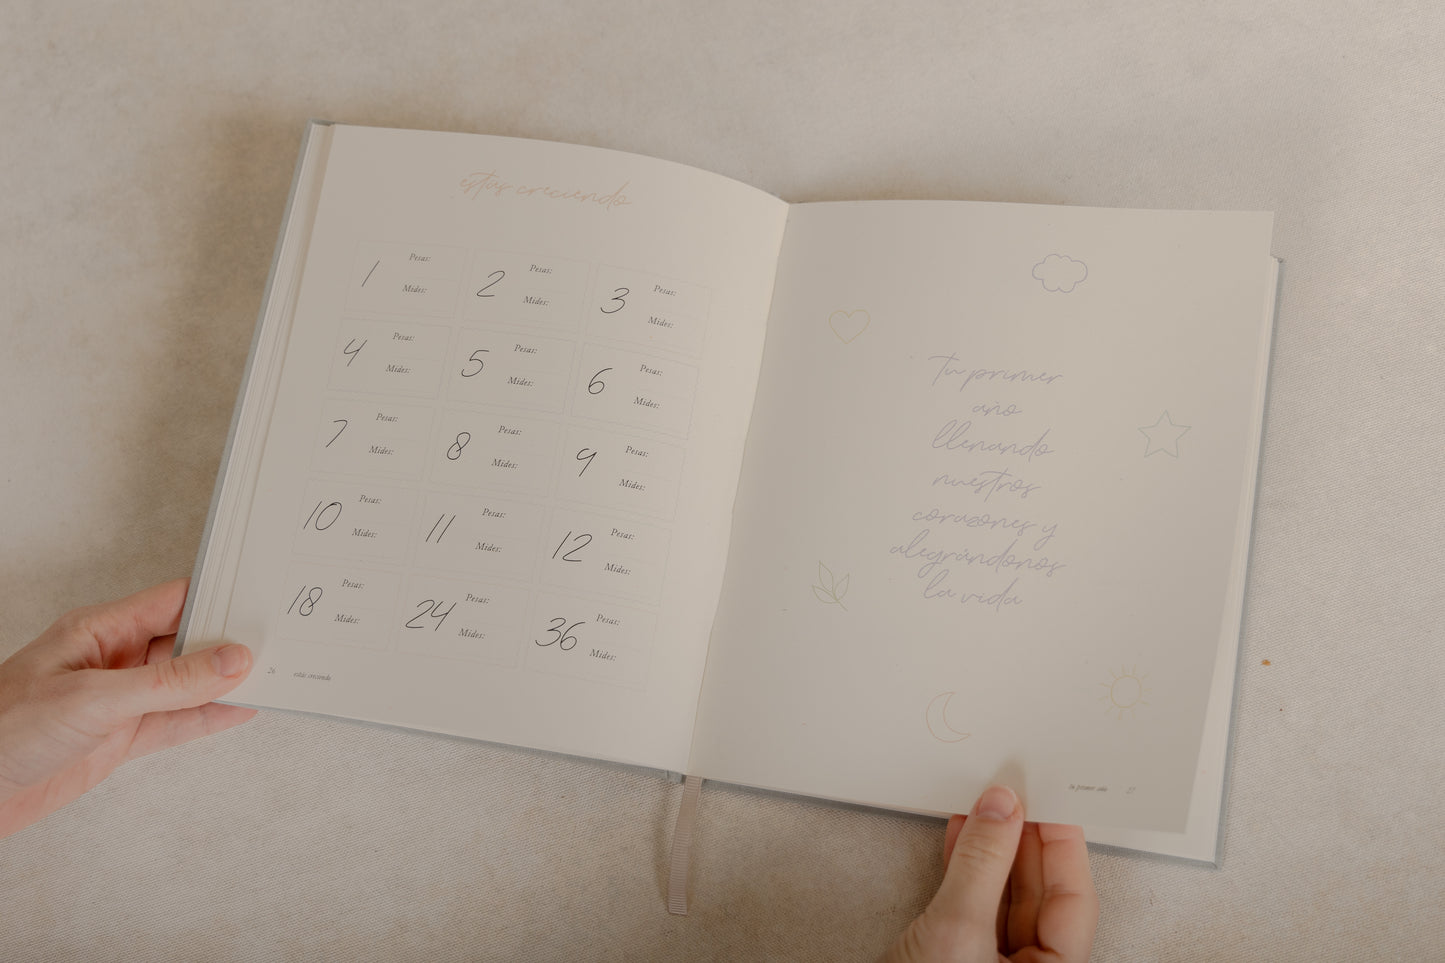 estás creciendo
1 Pesas: Mides:
2 Pesas: Mides:
3 Pesas: Mides:
4 Pesas: Mides:
5 Pesas: Mides:
6 Pesas: Mides:
7 Pesas: Mides:
8 Pesas: Mides:
9 Pesas: Mides:
10 Pesas: Mides:
11 Pesas: Mides:
12 Pesas: Mides:
18 Pesas: Mides:
24 Pesas: Mides:
36 Pesas: Mides:
26 estás creciendo
Tu primer
año
llenando
nuestros
corazones y
alegrándonos
la vida
tu primer año 27